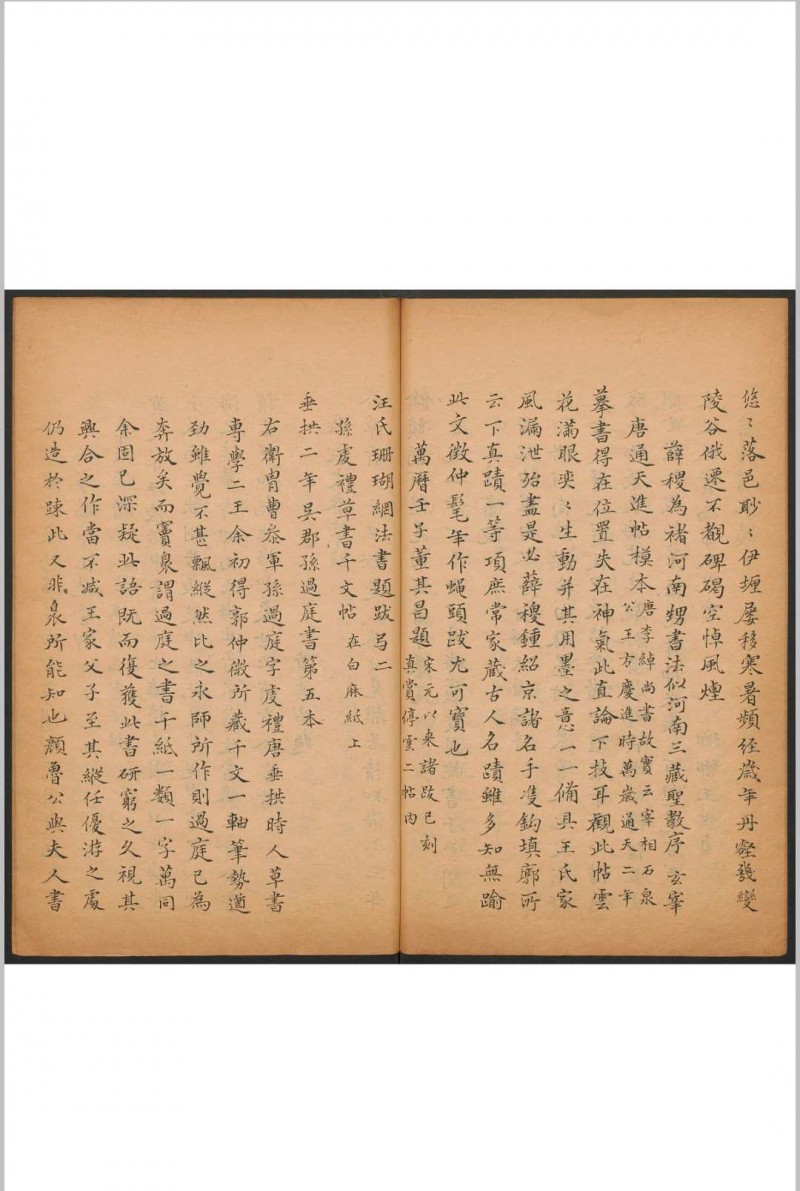 悠〻落邑眇〻伊塵屢移寒暑頻経歲年丹壑幾變
陵谷俄遷不觀碑碣空悼風煙
薛稷為褚河南甥書法似河南三藏聖教序
唐通天進帖模本唐李綽尚書故實云宰相石泉
公王方慶進時萬歲通天二年
摹書得在位置失在神氣此直論下技耳觀此帖雲
花滿眼奕〻生動并其用墨之意一一備具王氏家
風漏泄殆盡是必薛稷鍾紹京諸名手雙鈎填廓所
云下真蹟一等項庶常家蔵古人名蹟雖多知無踰
此文徵仲髦年作蠅頭跋尤可寶也
萬曆壬子董其昌題宋元以来諸跋已刻
真賞停雲二帖內
汪氏珊瑚網法書題跋弓二
孫虔禮草書千文帖在白麻紙上
垂拱二年吳郡孫過庭書第五本
右衛胄曹叅軍孫過庭字虔禮唐垂拱時人草書
專學二王余初得郭仲微所藏千文一軸筆勢遒
勁雖覺不甚飄縱然比之永師所作則過庭已為
奔放矣而竇臮謂過庭之書千紙一類一字萬同
余固已深疑此語既而復獲此書研窮之久視其
興合之作當不减王家父子至其縱任優游之處
仍造於踈此又非泉所能知也顔魯公與夫人書